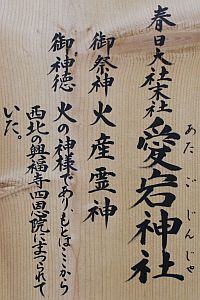 春日大社末社
愛宕神社
あたごじんじゃ
御祭神 火産霊神
御神徳 火の神様であり、もとはここから
西北の興福寺四恩院にまつられて
いた。